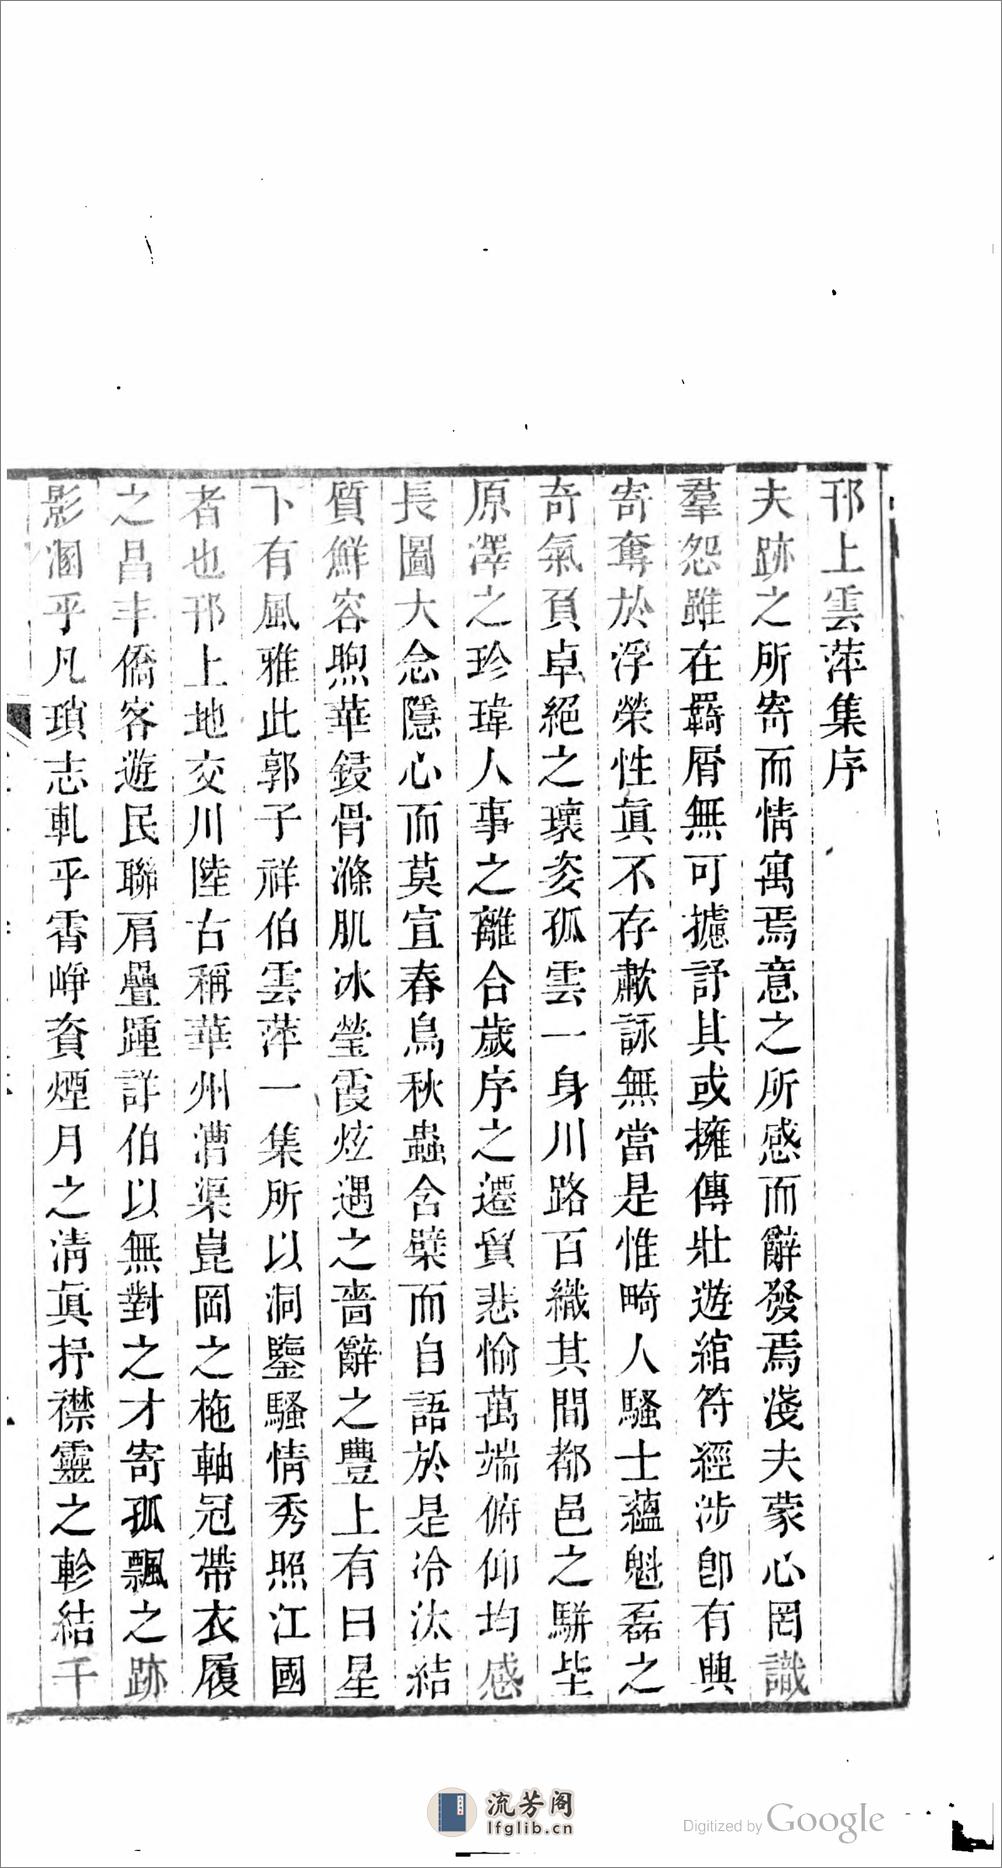 邗上雲萍集序
夫跡之所寄而情寓焉意之所感而辭發焉淺夫蒙心罔識
羣怨雖在羇屑無可攄訏其或擁傳壯遊綰符經涉卽有興
寄奪於浮榮性眞不存歗詠無當是惟畸人騷士蘊魁磊之
奇氣負卓絕之瓌姿孤雲一身川路百織其間都邑之駢坒
原澤之珍瑋人事之離合歲序之遷貿悲愉萬端俯仰均感
長圖大念隱心而莫宣春鳥秋蟲含櫱而自語於是冷汰結
質鮮容煦華鋟骨滌肌冰瑩霞炫遇之嗇辭之豐上有日星
下有風雅此郭子祥伯雲萍一集所以洞鑒騷情秀照江國
者也邗上地交川陸古稱華州漕渠崑岡之柂軸冠帶衣履
之昌丰僑客遊民聯肩疊踵詳伯以無對之才寄孤飄之跡
影溷乎凡瑣志軋乎霄崢賁煙月之淸眞抒襟靈之軫結千
流芳阁
lfglib.cn
Digitized by Google